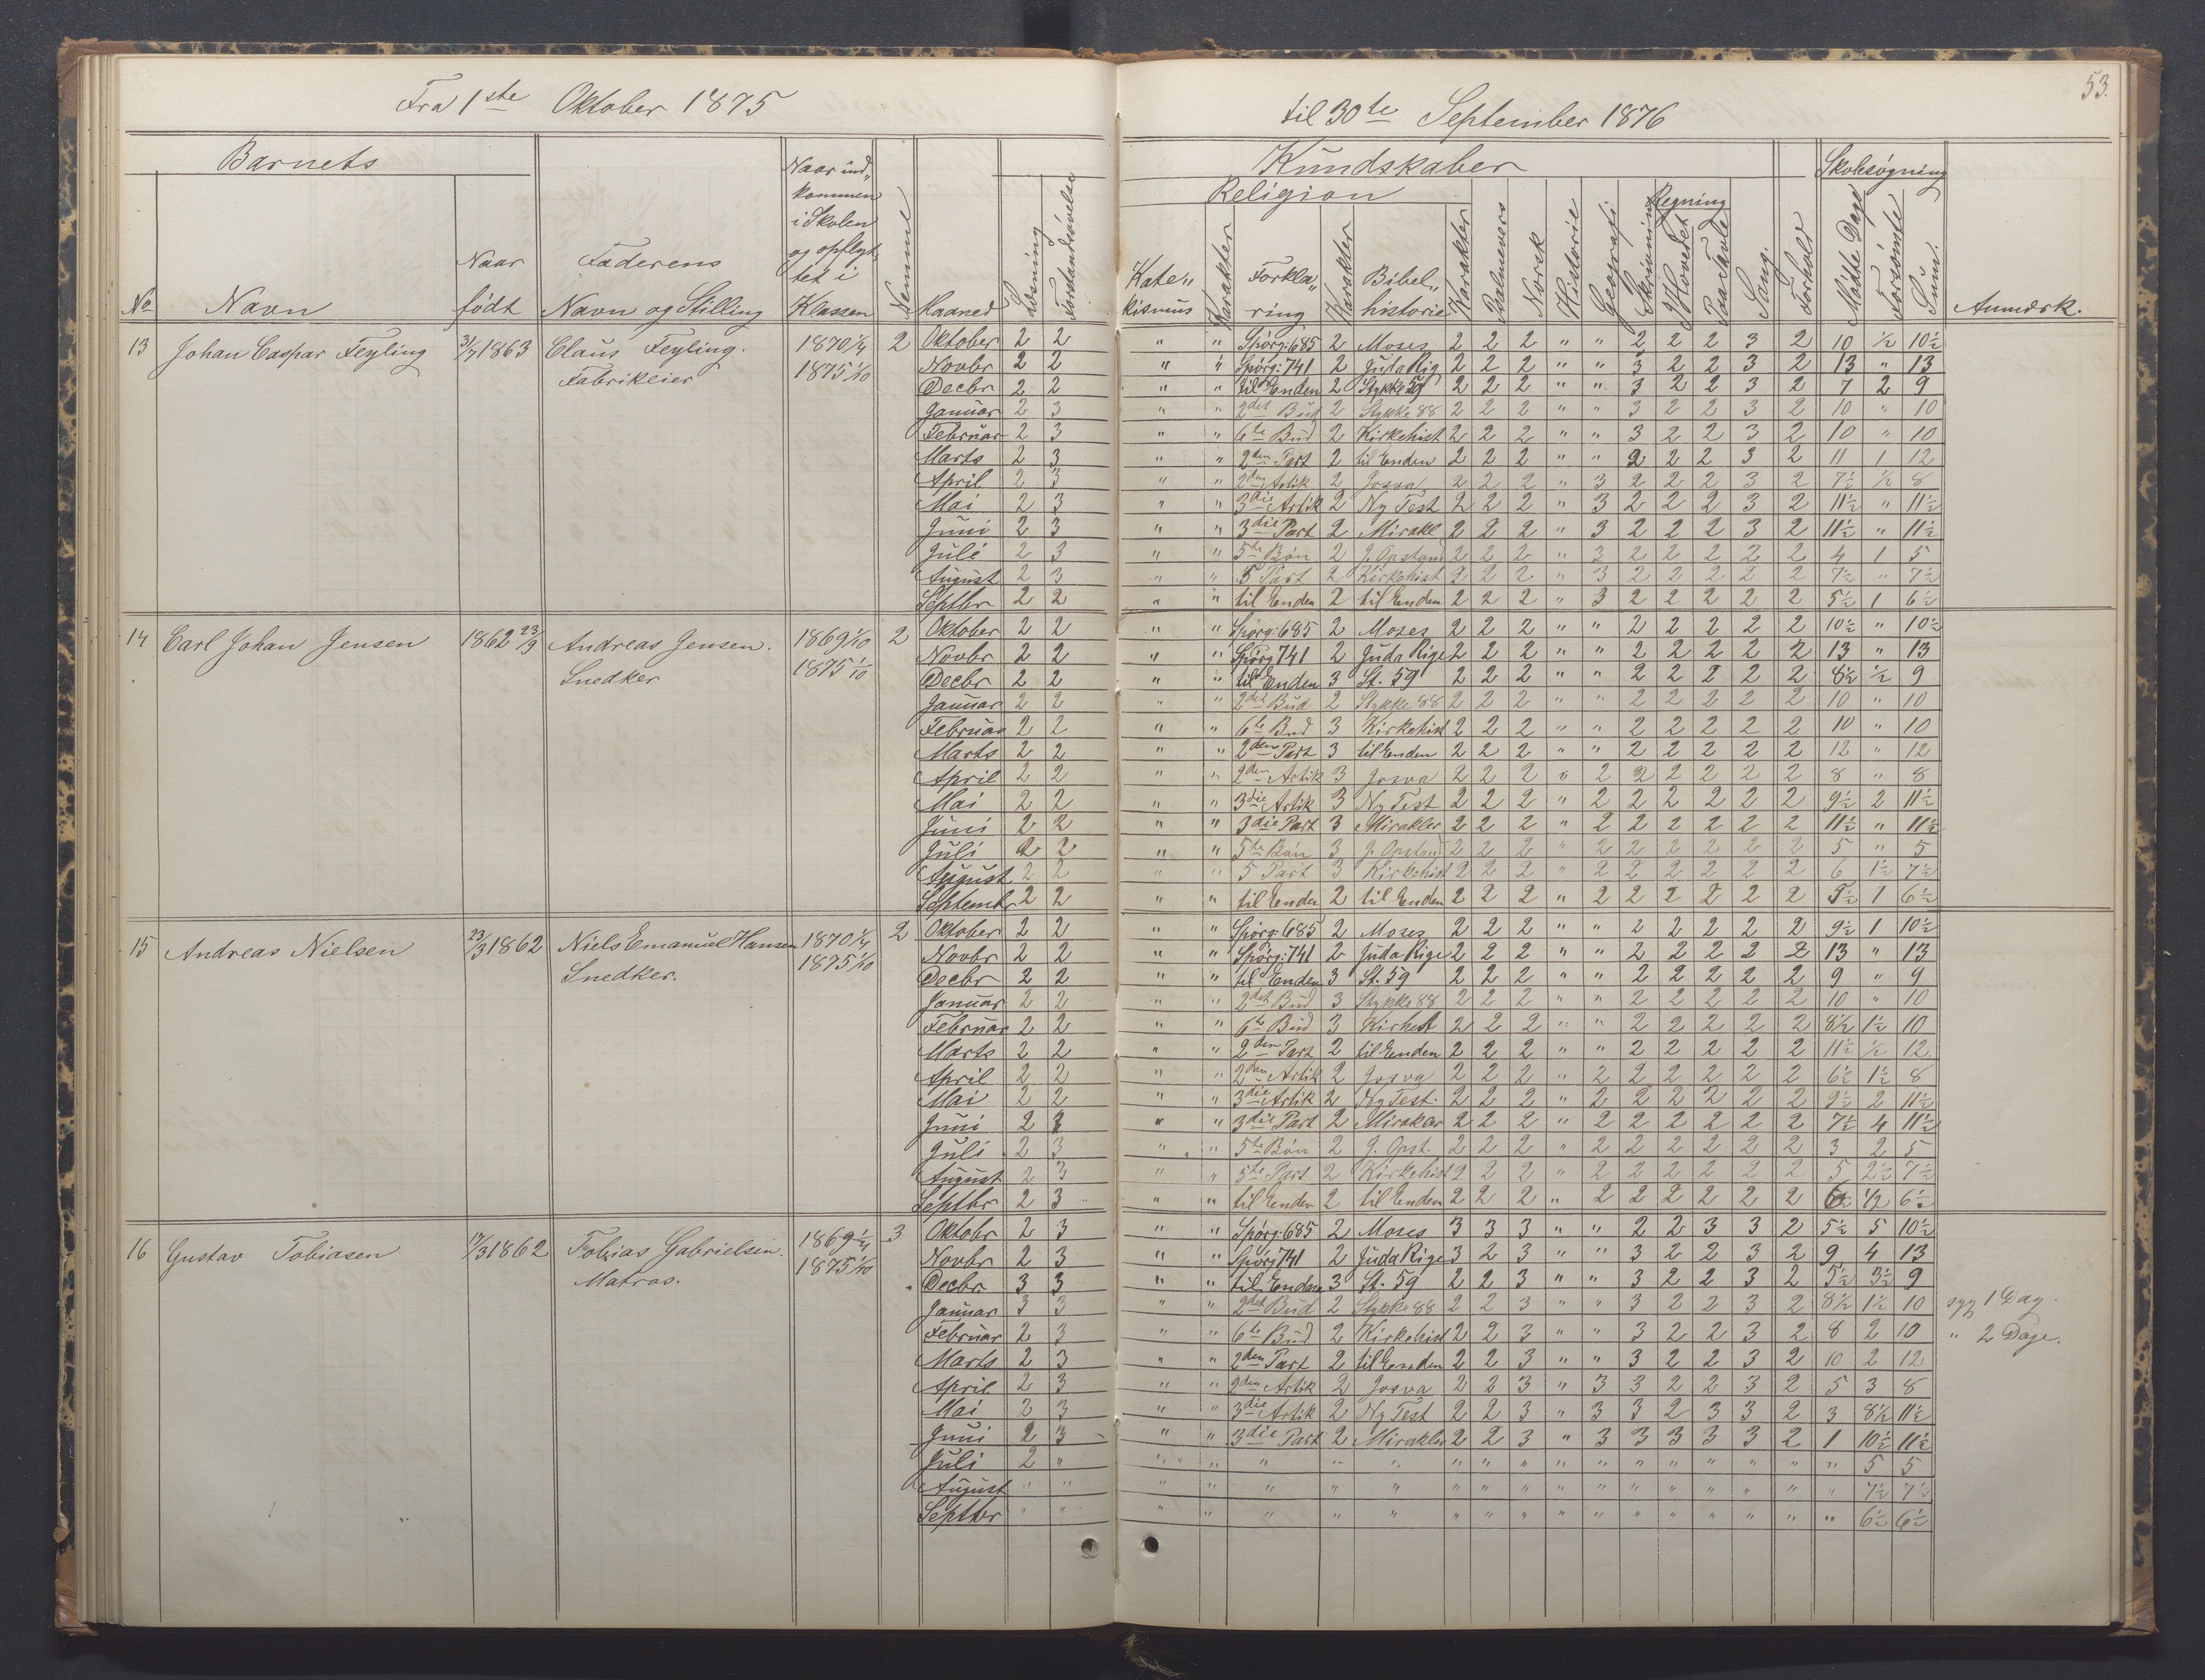 53.
Fra 1ste Oktober 1875 til 30te September 1876
Barnets Kundskaber Skolesøgning
Religion Regning
No Navn Naar født Faderens Navn og Stilling Naar ind„kommen i Skolen og opflyttet i Klassen Nemme Maaned Læsning Forstandsøvelse Kate„kismus Karakter Forkla„ring Karakter Bibel„historie Karakter Psalmevers Norsk Historie Geografi Skrivning I Hovedet Paa Tavle Sang. Forhold Mødte Dage Forsømte Sum. Anmærk.
13 Johan Caspar Feyling 31/7 1863 Claus Feyling. 1870 1/4 2 Oktober 2 2 " " Spørg: 685 2 Moses 2 2 2 " " 2 2 2 3 2 10 ½ 10½
Fabrikeier 1875 1/10 Novbr 2 2 " " Spørg: 741 2 Juda Rig 2 2 2 " " 3 2 2 3 2 13 " 13
Decbr 2 2 " " til Enden 2 Stykke 59 2 2 2 " " 3 2 2 3 2 7 2 9
Januar 2 3 " " 2det Bud 2 Stykke 88 2 2 2 " " 3 2 2 3 2 10 " 10
Februar 2 3 " " 6te Bud 2 Kirkehist 2 2 2 " " 3 2 2 3 2 10 " 10
Marts 2 3 " " 2den Part 2 til Enden 2 2 2 " " 2 2 2 3 2 11 1 12
April 2 3 " " 2den Artik 2 Josva 2 2 2 " 3 2 2 2 3 2 7½ ½ 8
Mai 2 3 " " 3die Artik 2 Ny Test 2 2 2 " 3 2 2 2 3 2 11½ " 11½
Juni 2 3 " " 3die Part 2 Mirakl 2 2 2 " 3 2 2 2 3 2 11½ " 11½
Juli 2 3 " " 5te Bøn 2 J. Opstand 2 2 2 " 3 2 2 2 2 2 4 1 5
August 2 3 " " 5 Part 2 Kirkehist 2 2 2 " 3 2 2 2 2 2 7½ " 7½
Septbr 2 2 " " til Enden 2 til Enden 2 2 2 " 3 2 2 2 2 2 5½ 1 6½
14 Carl Johan Jensen 1862 23/9 Andreas Jensen. 1869 1/10 2 Oktober 2 2 " " Spørg: 685 2 Moses 2 2 2 " " 2 2 2 2 2 10½ " 10½
Snedker 1875 1/10 Novbr 2 2 " " Spørg 741 2 Juda Rige 2 2 2 " " 2 2 2 2 2 13 " 13
Decbr 2 2 " " til Enden 3 St. 59 2 2 2 " " 2 2 2 2 2 8½ ½ 9
Januar 2 2 " " 2det Bud 2 Stykke 88 2 2 2 " " 2 2 2 2 2 10 " 10
Februar 2 2 " " 6te Bud 3 Kirkehist 2 2 2 " " 2 2 2 2 2 10 " 10
Marts 2 2 " " 2den Part 3 til Enden 2 2 2 " " 2 2 2 2 2 12 " 12
April 2 2 " " 2den Artik 3 Josva 2 2 2 " 2 2 2 2 2 2 8 " 8
Mai 2 2 " " 3die Artik 3 Ny Test 2 2 2 " 2 2 2 2 2 2 9½ 2 11½
Juni 2 2 " " 3die Part 3 Mirakler 2 2 2 " 2 2 2 2 2 2 11½ " 11½
Juli 2 2 " " 5te Bøn 3 J. Opstand 2 2 2 " 2 2 2 2 2 2 5 " 5
August 2 2 " " 5 Part 3 Kirkehist 2 2 2 " 2 2 2 2 2 2 6 1½ 7½
Septembr 2 2 " " til Enden 2 til Enden 2 2 2 " 2 2 2 2 2 2 5½ 1 6½
15 Andreas Nielsen 23/3 1862 Niels Emanuel Hansen 1870 1/4 2 Oktober 2 2 " " Spørg: 685 2 Moses 2 2 2 " " 2 2 2 2 2 9½ 1 10½
Snedker. 1875 1/10 Novbr 2 2 " " Spørg: 741 2 Juda Rige 2 2 2 " " 2 2 2 2 2 13 " 13
Decbr 2 2 " " til Enden 3 St. 59 2 2 2 " " 2 2 2 2 2 9 " 9
Januar 2 2 " " 2det Bud 3 Stykke 88 2 2 2 " " 2 2 2 2 2 10 " 10
Februar 2 2 " " 6te Bud 3 Kirhist 2 2 2 " " 2 2 2 2 2 8½ 1½ 10
Marts 2 2 " " 2den Part 2 til Enden 2 2 2 " " 2 2 2 2 2 11½ ½ 12
April 2 2 " " 2den Artik 2 Josva 2 2 2 " 2 2 2 2 2 2 6½ 1½ 8
Mai 2 2 " " 3die Artik 2 Ny Test. 2 2 2 " 2 2 2 2 2 2 9½ 2 11½
Juni 2 " " 3die Part 2 Mirakler 2 2 2 " 2 2 2 2 2 2 7½ 4 11½
Juli 2 3 " " 5te Bøn 2 J. Opst. 2 2 2 " 2 2 2 2 2 2 3 2 5
August 2 3 " " 5te Part 2 Kirkehist 2 2 2 " 2 2 2 2 2 2 5 2½ 7½
Septbr 2 3 " " til Enden 2 til Enden 2 2 2 " 2 2 2 2 2 2 6 ½ 6½
16 Gustav Tobiasen 17/3 1862 Tobias Gabrielsen. 1869 1/4 3 Oktobr 2 3 " " Spørg: 685 2 Moses 3 3 3 " " 2 2 3 3 2 5½ 5 10½
Matros. 1875 1/10 Novbr 2 3 " " Spørg 741 2 Juda Rige 3 2 3 " " 3 2 2 3 2 9 4 13
Decbr 3 3 " " til Enden 3 St. 59 2 2 3 " " 3 2 2 3 2 5½ 3½ 9
Januar 3 3 " " 2det Bud 2 Stykke 88 2 2 3 " " 3 2 2 3 2 8½ 1½ 10 syg 1 Dag.
Februar 2 3 " " 6te Bud 2 Kirkehist 2 2 3 " " 3 2 2 3 2 8 2 10 " 2 Dage.
Marts 2 3 " " 2den Part 2 til Enden 2 2 3 " " 3 2 2 3 2 10 2 12
April 2 3 " " 2den Artik 2 Josva 2 2 3 " 3 3 2 2 3 2 5 3 8
Mai 2 3 " " 3die Artik 2 Ny Test 2 2 3 " 3 3 2 3 3 2 3 8½ 11½
Juni 2 3 " " 3die Part 2 Mirakler 2 2 3 " 3 3 3 3 3 2 1 10½ 11½
Juli 2 " " " " " " " " " " " " " " " " " 5 5
August " " " " " " " " " " " " " " " " " " 7½ 7½
Septbr " " " " " " " " " " " " " " " " " " 6½ 6½